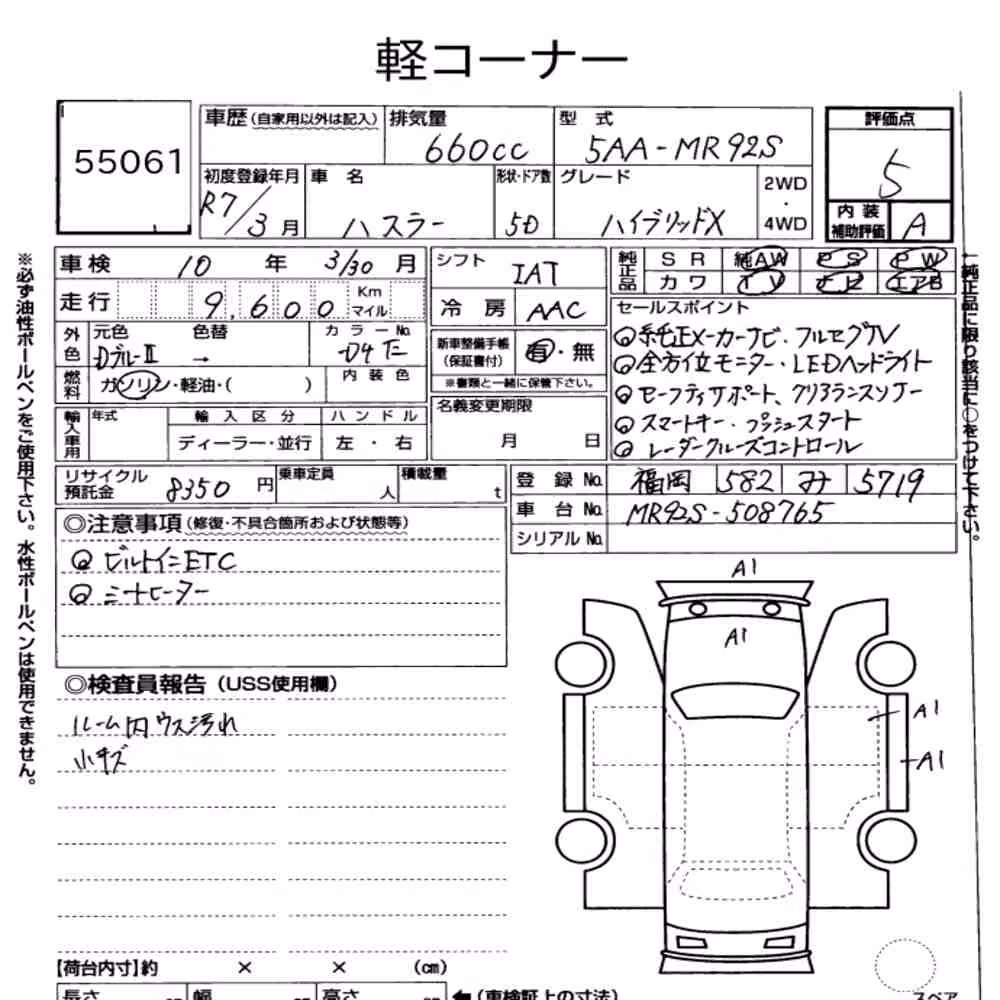 軽コーナー
55061
車歴 (自家用以外は記入) 排気量 型式 評価点
660cc 5AA-MR92S 5
初度登録年月 車名 形状・ドア数 グレード 2WD・4WD
R7/3月 ハスラー 5D ハイブリッドX
内装補助評価 A
車検 10年 3/30月
シフト IAT
純正品 SR 純AW PS PW
カワ TV ナビ エアB
走行 9,600 Km マイル
冷房 AAC
セールスポイント
外色 元色 色替 カラーNo.
DブルーII →
新車整備手帳 (保証書付) 有・無
※書類と一緒に保管下さい。
燃料 ガソリン・軽油・( ) 内装色
◎純正メーカーナビ、フルセグTV
◎全方位モニター・LEDヘッドライト
◎セーフティサポート、クリアランスソナー
◎スマートキー、プッシュスタート
◎レーダークルーズコントロール
名義変更期限
月 日
輸入車用 年式 輸入区分 ハンドル
ディーラー・並行 左・右
リサイクル預託金 8350円 乗車定員 人 積載量 t
登録No. 福岡 582 み 5719
車台No. MR92S-508765
シリアルNo.
◎注意事項 (修復・不具合箇所および状態等)
◎ビルトインETC
◎シートヒーター
◎検査員報告 (USS使用欄)
ルーム内ウス汚れ
小キズ
A1
A1
A1
A1
【荷台内寸】約 × × (cm)
長さ 幅 高さ ←(車検証上の寸法)
スペア
※必ず油性ボールペンをご使用下さい。水性ボールペンは使用できません。
純正品に限り該当に○をつけて下さい。